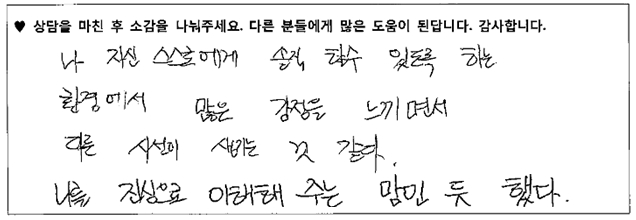 ♥ 상담을 마친 후 소감을 나눠주세요. 다른 분들에게 많은 도움이 된답니다. 감사합니다.
나 자신 스스로에게 솔직 할수 있도록 하는
환경에서 많은 감정을 느끼면서
다른 시선이 생기는 것 같다.
나를 진심으로 이해해 주는 맘인 듯 했다.